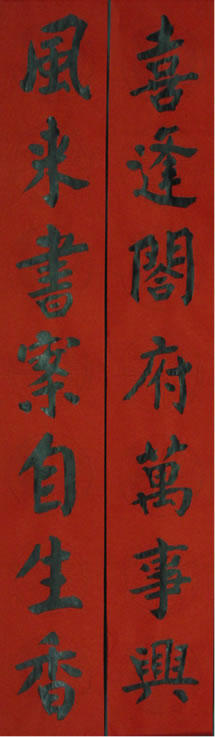 喜逢閤府萬事興
風来書案自生香